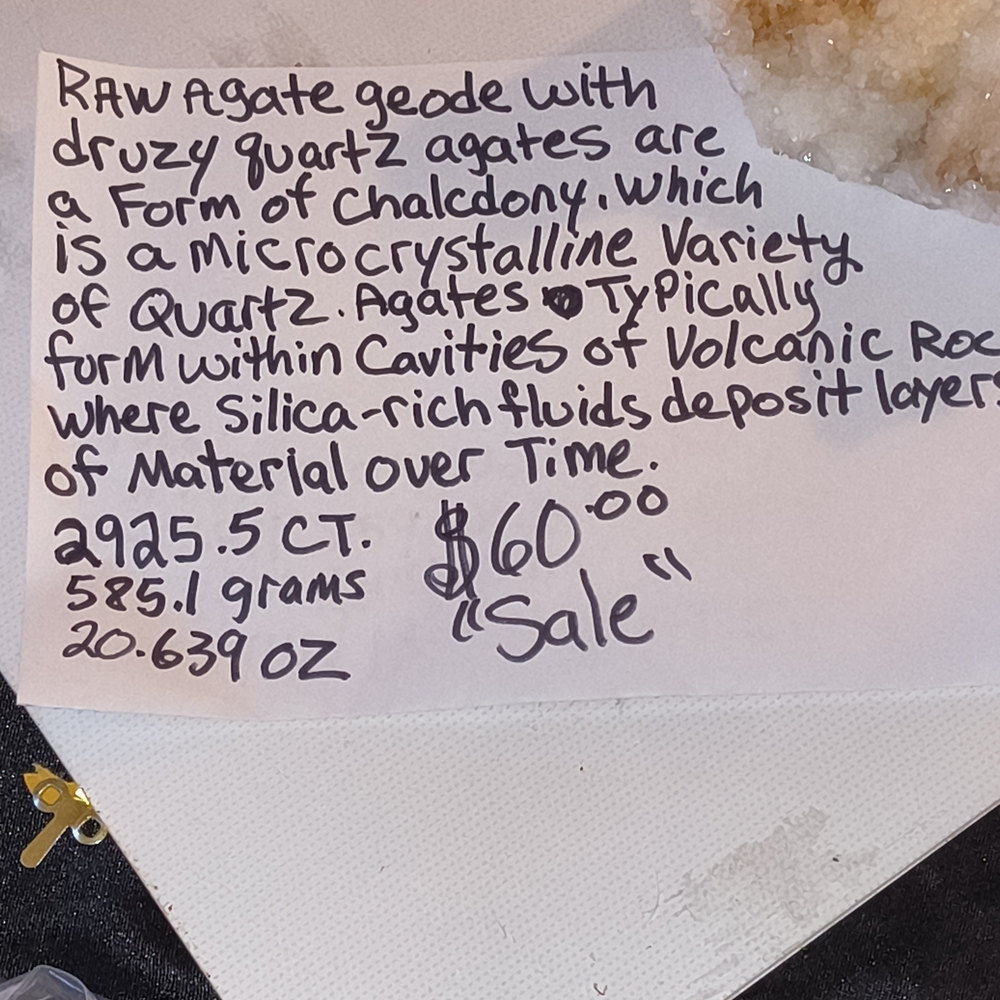 RAW Agate geode with
druzy quartz agates are
a Form of Chalcdony. which
is a microcrystalline Variety
of Quartz. Agates Typically
form within Cavities of Volcanic Roc
where Silica-rich fluids deposit layers
of Material over Time.
2925.5 CT. $60.00
585.1 grams "Sale"
20.639 oz